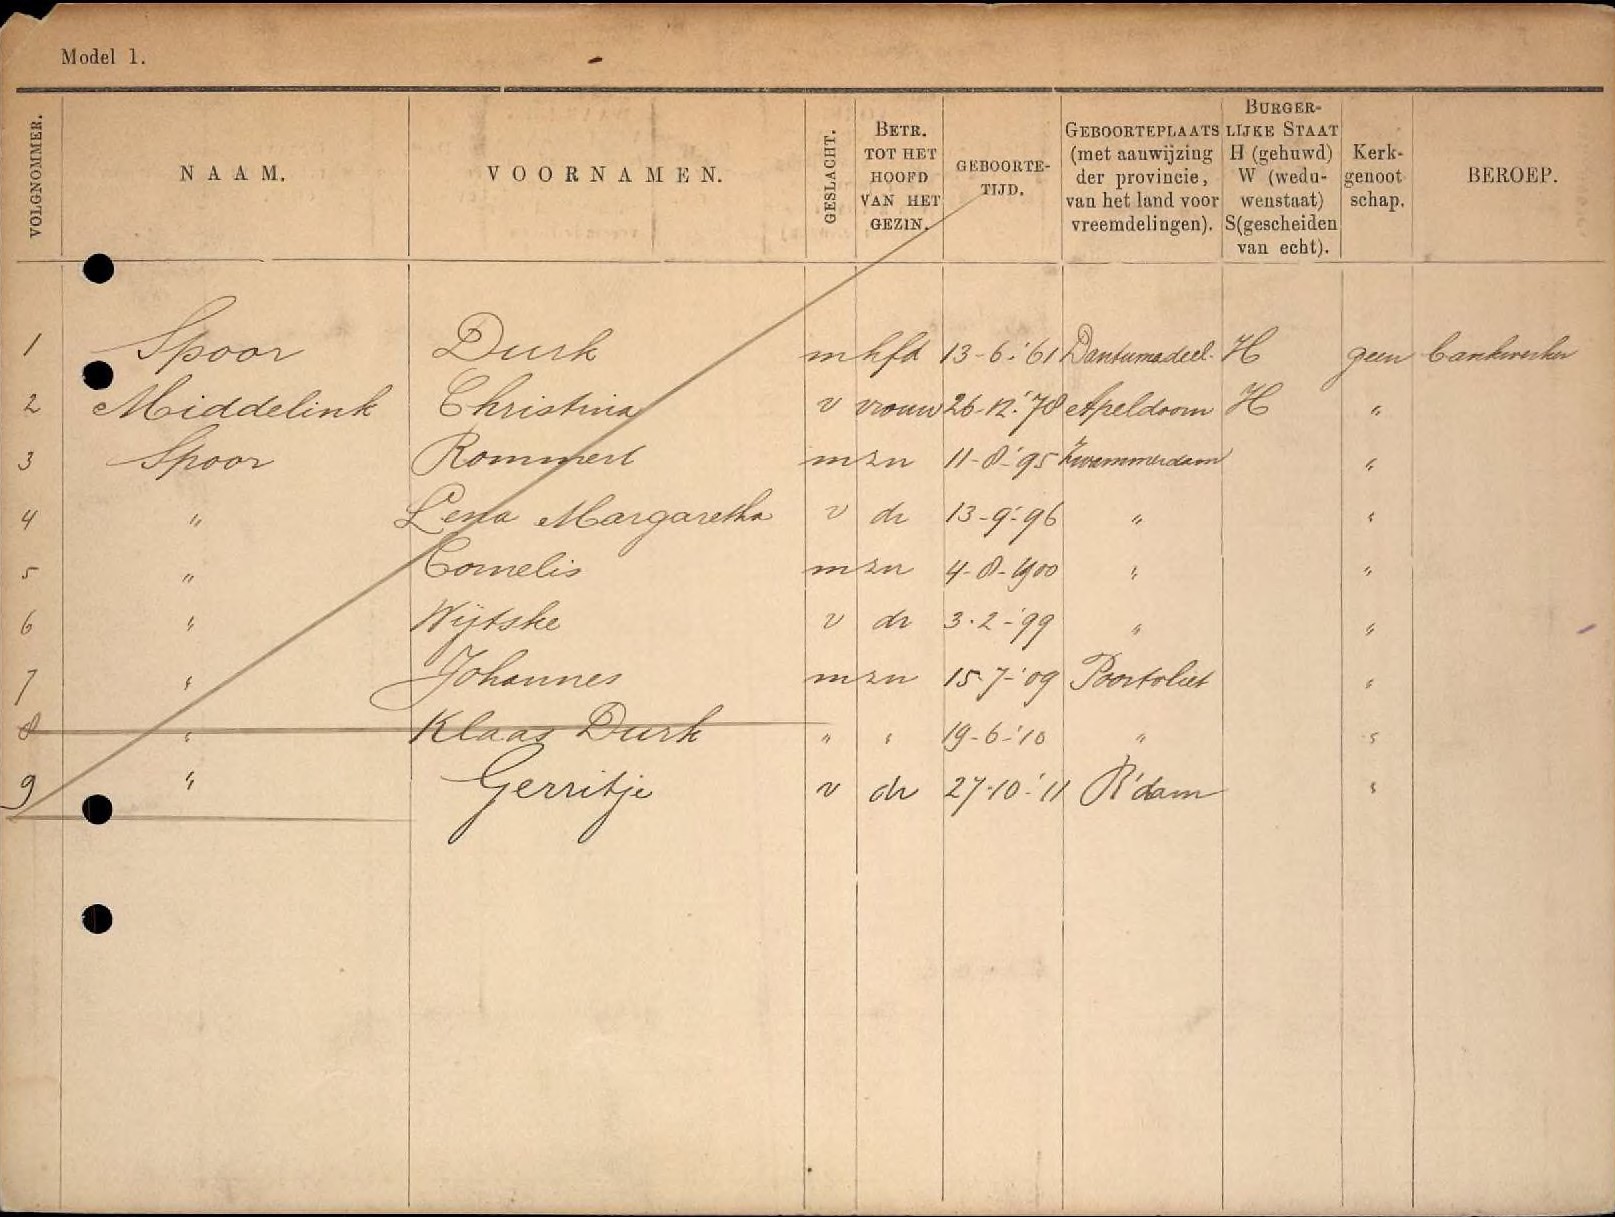 Model 1.
VOLGNOMMER. NAAM. VOORNAMEN. GESLACHT. BETR. TOT HET HOOFD VAN HET GEZIN. GEBOORTE-TIJD. GEBOORTEPLAATS (met aanwijzing der provincie, van het land voor vreemdelingen). BURGER-LIJKE STAAT H (gehuwd) W (wedu-wenstaat) S(gescheiden van echt). Kerk-genoot schap. BEROEP.
1 Spoor Durk m hfd 13-6-'61 Dantumadeel. H geen bankwerker
2 Middelink Christina v vrouw 26-12-'78 Apeldoorn H "
3 Spoor Rommert m zn 11-8-'95 Zwammerdam "
4 " Lena Margaretha v dr 13-9-'96 " "
5 " Cornelis m zn 4-8-1900 " "
6 " Wijtske v dr 3-2-'99 " "
7 " Johannes m zn 15-7-'09 Poortvliet "
8 " Klaas Durk " " 19-6-'10 " "
9 " Gerritje v dr 27-10-'11 R'dam "